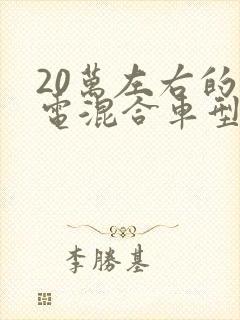 20萬左右的
電混合車型
李勝基